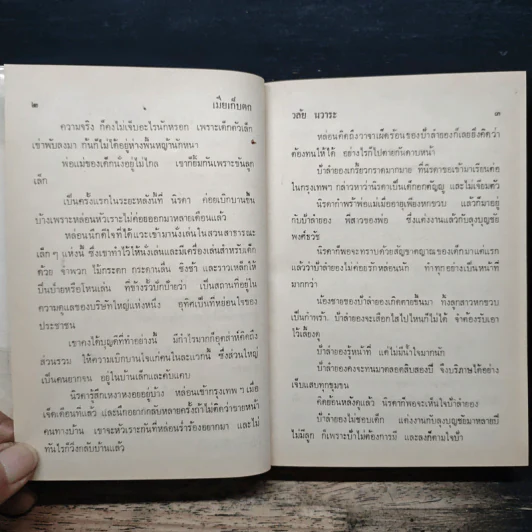 ๒ เมียเก็บตก
ความจริง ก็คงไม่เจ็บอะไรนักหรอก เพราะเด็กตัวเล็ก
เข่าพับลงมา ก้นก็ไม่ได้อยู่ห่างพื้นหญ้านักหนา
พ่อแม่ของเด็กนั่งอยู่ไม่ไกล เขาก็ยิ้มกันเพราะขันลูก
เล็ก
เป็นครั้งแรกในระยะหลังนี้ที่ นิรดา ค่อยเบิกบานขึ้น
บ้างเพราะหล่อนหัวเราะไม่ค่อยออกมาหลายเดือนแล้ว
หล่อนนึกดีใจที่ได้แวะเข้ามานั่งเล่นในสวนสาธารณะ
เล็กๆ แห่งนี้ ซึ่งเขาทำไว้ให้นั่งเล่นและมีเครื่องเล่นสำหรับเด็ก
ด้วย จำพวก ไม้กระดก กระดานลื่น ชิงช้า และราวเหล็กให้
ปีนป่ายหรือโหนเล่น ที่ข้างรั้วมีป้ายว่า เป็นสถานที่อยู่ใน
ความดูแลของบริษัทใหญ่แห่งหนึ่ง อุทิศเป็นที่หย่อนใจของ
ประชาชน
เขาคงได้บุญดีที่ทำอย่างนี้ มีกำไรมากก็อุตส่าห์คิดถึง
ส่วนรวม ให้ความเบิกบานใจแก่คนในละแวกนี้ ซึ่งส่วนใหญ่
เป็นคนยากจน อยู่ในบ้านเล็กและคับแคบ
นิรดารู้สึกเหงาหงอยอยู่บ้าง หล่อนเข้ากรุงเทพฯ เมื่อ
เจ็ดเดือนที่แล้ว และนึกอยากกลับหลายครั้งถ้าไม่คิดว่าขายหน้า
คนทางบ้าน เขาจะหัวเราะกันที่หล่อนร่ำร้องอยากมา และไม่
ทันไรก็วิ่งกลับบ้านแล้ว
วลัย นวาระ ๓
หล่อนคิดถึงวาจาเผ็ดร้อนของป้าลำยองก็เลยฮึ่งคิดว่า
ต้องทนให้ได้ อย่างไรก็ไปตายกันดาบหน้า
ป้าลำยองเกรี้ยวกราดมากมาย ที่นิรดาขอเข้ามาเรียนต่อ
ในกรุงเทพฯ กล่าวหาว่านิรดาเป็นเด็กอกตัญญู และไม่เจียมตัว
นิรดากำพร้าพ่อแม่เมื่ออายุเพียงหกขวบ แล้วก็มาอยู่
กับป้าลำยอง พี่สาวของพ่อ ซึ่งแต่งงานแล้วกับลุงบุญชัย
พงศ์ธวัช
นิรดาก็พอจะทราบด้วยสัญชาตญาณของเด็กมาแต่แรก
แล้วว่าป้าลำยองไม่ค่อยรักหล่อนนัก ทำทุกอย่างเป็นหน้าที่
มากกว่า
น้องชายของป้าลำยองเกิดตายขึ้นมา ทิ้งลูกสาวหกขวบ
เป็นกำพร้า ป้าลำยองจะเลือกใสไปไหนก็ไม่ได้ จำต้องรับเอา
ไว้เลี้ยงดู
ป้าลำยองรู้หน้าที่ แต่ไม่มีน้ำใจมากนัก
ป้าลำยองคงจะทนมาตลอดสิบสองปี จึงบริภาษได้อย่าง
เจ็บแสบทุกขุมขน
คิดย้อนหลังดูแล้ว นิรดาก็พอจะเห็นใจป้าลำยอง
ป้าลำยองไม่ชอบเด็ก แต่งงานกับลุงบุญชัยมาหลายปี
ไม่มีลูก ก็เพราะป้าไม่ต้องการมี และลุงก็ตามใจป้า